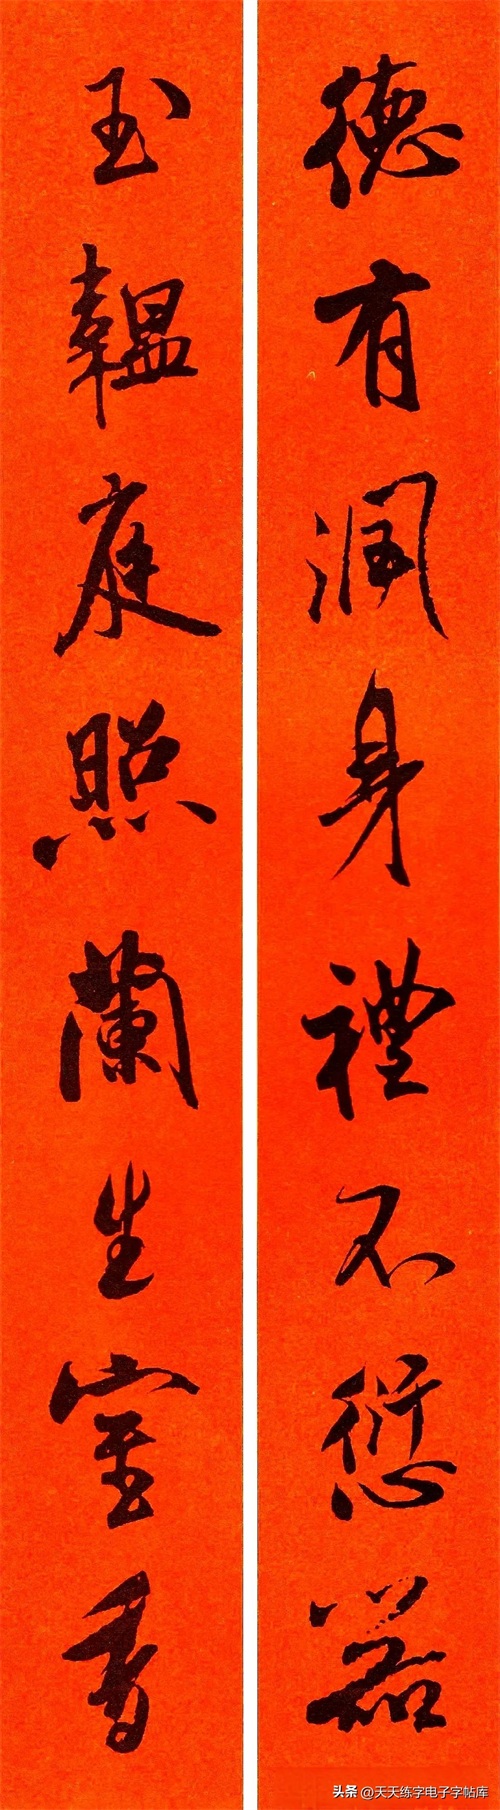 德有润身禮不愆器
玉韞庭照蘭生室香
头条 @天天练字电子字帖库